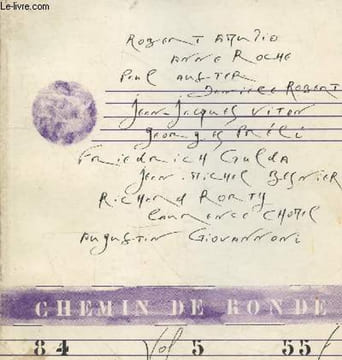 Le-livre.com
Robert Amutio
Anne Roche
Paul Auster
Danièle Robert
Jean-Jacques Viton
Georges Préli
Friedrich Gulda
Jean-Michel Besnier
Richard Rorty
Laurence Chotel
Augustin Giovannoni
CHEMIN DE RONDE
84 Vol 5 55f